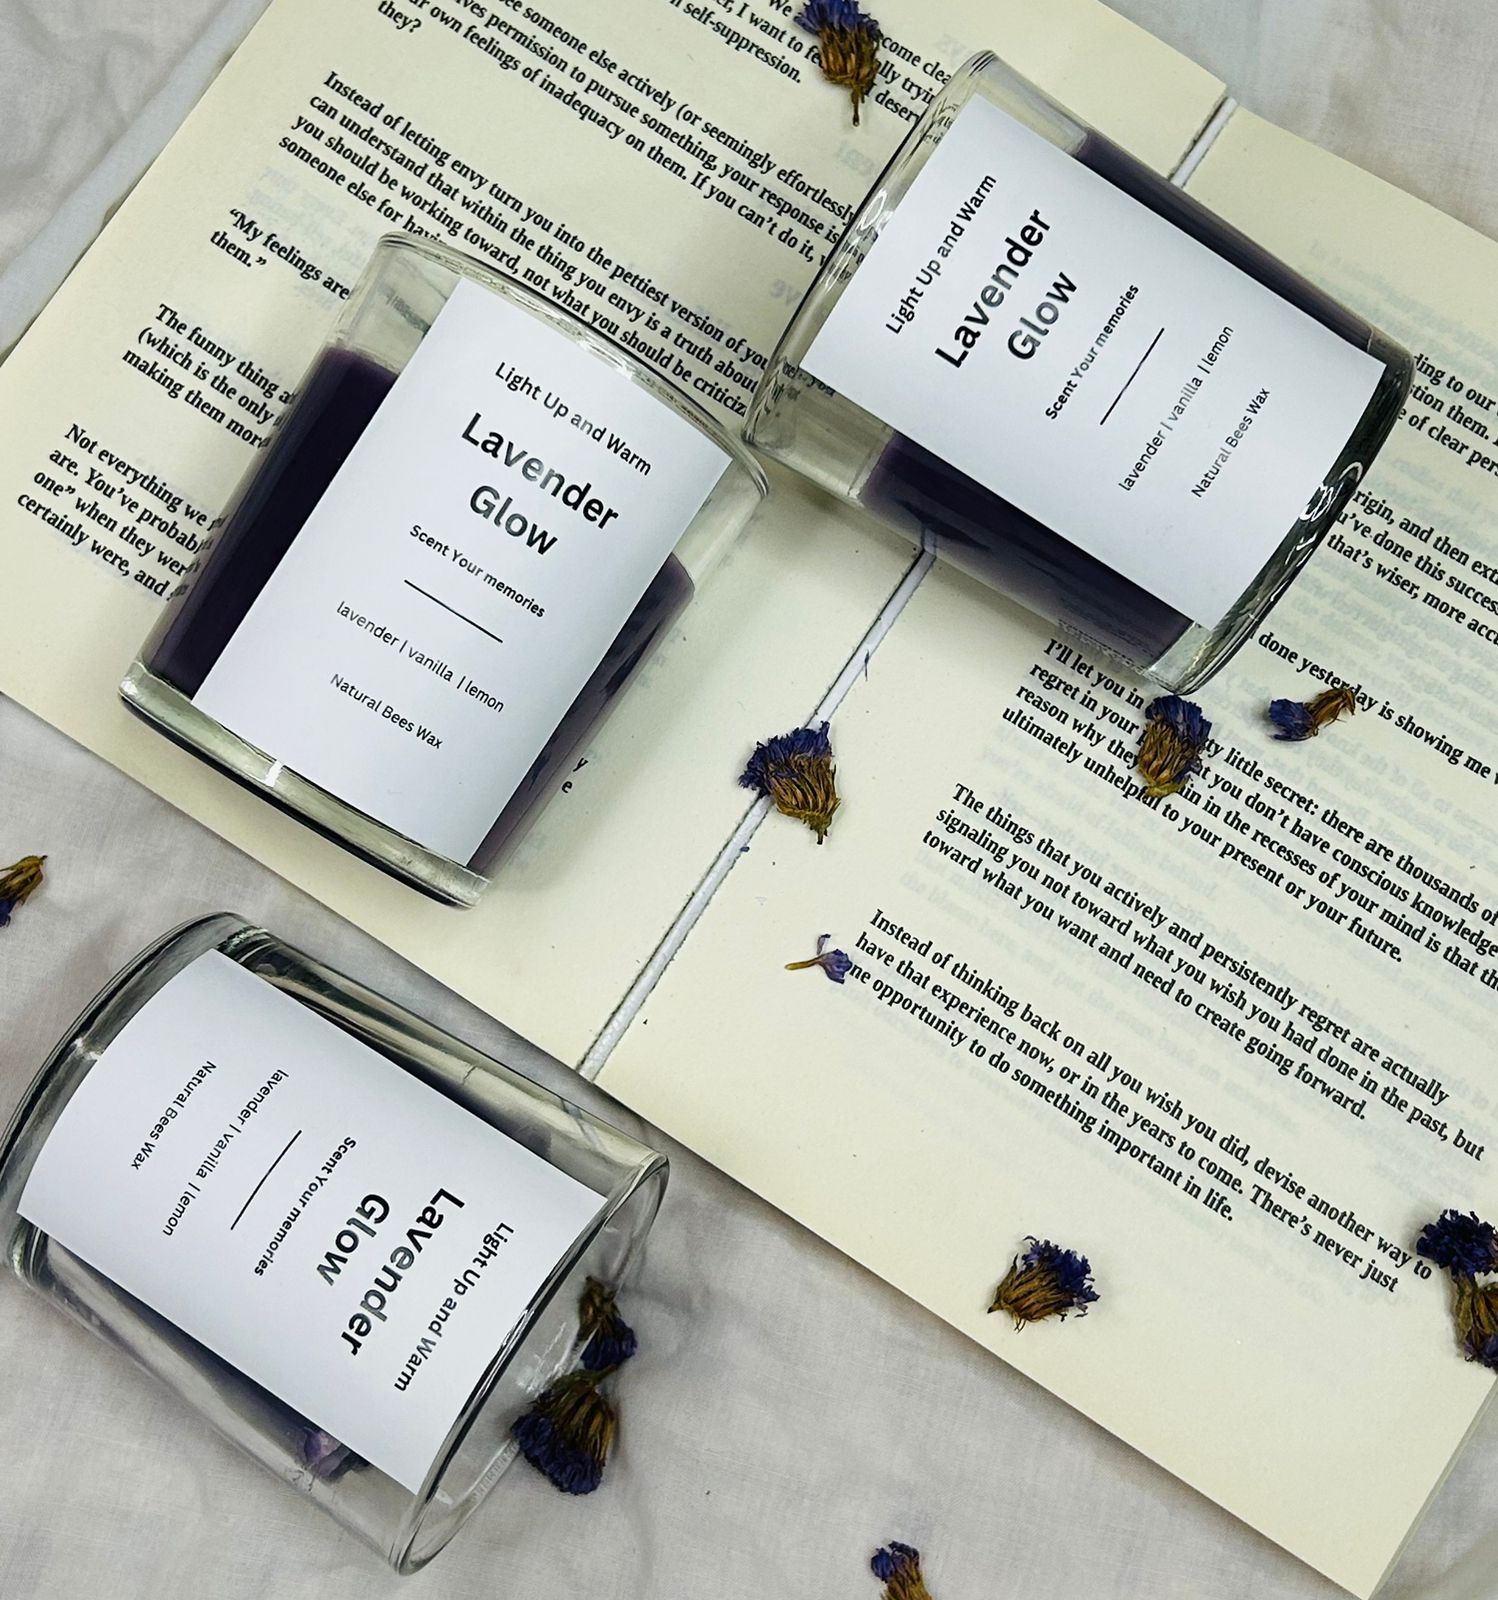 We
come clea
r, I want to fe
ally tryin
n self-suppression.
deser
see someone else actively (or seemingly effortlessly
ves permission to pursue something, your response is
ur own feelings of inadequacy on them. If you can't do it,
they?
Instead of letting envy turn you into the pettiest version of you
can understand that within the thing you envy is a truth about
you should be working toward, not what you should be criticiz
someone else for havi
"My feelings are
them."
The funny thing a
(which is the only
making them mor
Not everything we
are. You've probab
one" when they wer
certainly were, and
y
e
Light Up and Warm
Lavender
Glow
Scent Your memories
lavender | vanilla | lemon
Natural Bees Wax
Light Up and Warm
Lavender
Glow
Scent Your memories
lavender | vanilla | lemon
Natural Bees Wax
Light Up and Warm
Lavender
Glow
Scent Your memories
lavender | vanilla | lemon
Natural Bees Wax
ding to our
tion them. I
e of clear pers
rigin, and then ext
u've done this success
that's wiser, more accu
done yesterday is showing me
I'll let you in ty little secret: there are thousands of
regret in your t you don't have conscious knowledge
reason why they in in the recesses of your mind is that the
ultimately unhelpful to your present or your future.
The things that you actively and persistently regret are actually
signaling you not toward what you wish you had done in the past, but
toward what you want and need to create going forward.
Instead of thinking back on all you wish you did, devise another way to
have that experience now, or in the years to come. There's never just
ne opportunity to do something important in life.